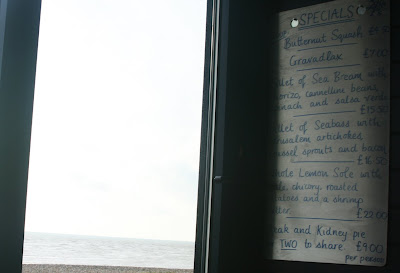 SPECIALS
Butternut Squash
Gravadlax £7.00
llet of Sea Bream with
orizo, cannellini beans,
nach and salsa verde
£15.50
llet of Seabass with
rusalem artichokes
ussel sprouts and
£16.50
hole Lemon Sole with
chicory, roasted
tatoes and a shrimp
tter. £22.00
eak and Kidney pie
TWO to share £9.00
per person